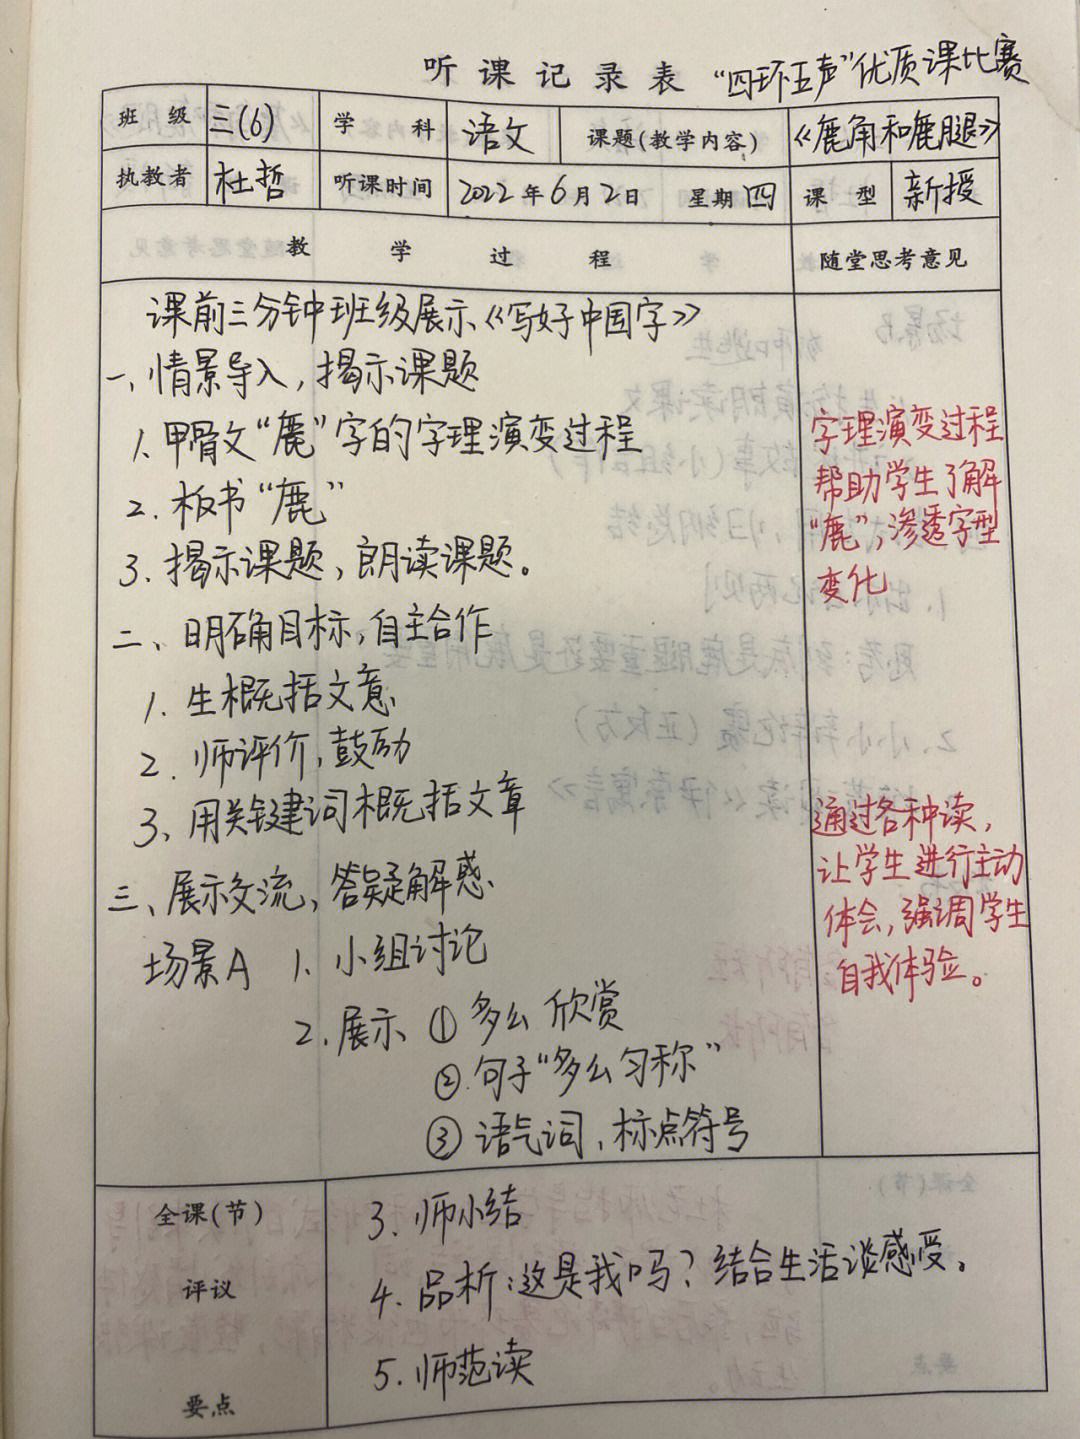 听课记录表 “四环五声”优质课比赛
班级 三(6) 学科 语文 课题(教学内容) 《鹿角和鹿腿》
执教者 杜哲 听课时间 2022年6月2日 星期四 课型 新授
教学过程 随堂思考意见
课前三分钟班级展示《写好中国字》
一、情景导入,揭示课题
1.甲骨文“鹿”字的字理演变过程
2.板书“鹿”
3.揭示课题,朗读课题。
二、明确目标,自主合作
1.生概括文意
2.师评价,鼓励
3、用关键词概括文章
三、展示交流,答疑解惑
场景A 1.小组讨论
2.展示 ①多么 欣赏
②句子“多么匀称”
③语气词、标点符号
字理演变过程
帮助学生了解
“鹿”,渗透字型
变化
通过各种读,
让学生进行主动
体会,强调学生
自我体验。
全课(节)
评议
要点
3.师小结
4.品析:这是我吗?结合生活谈感受。
5.师范读